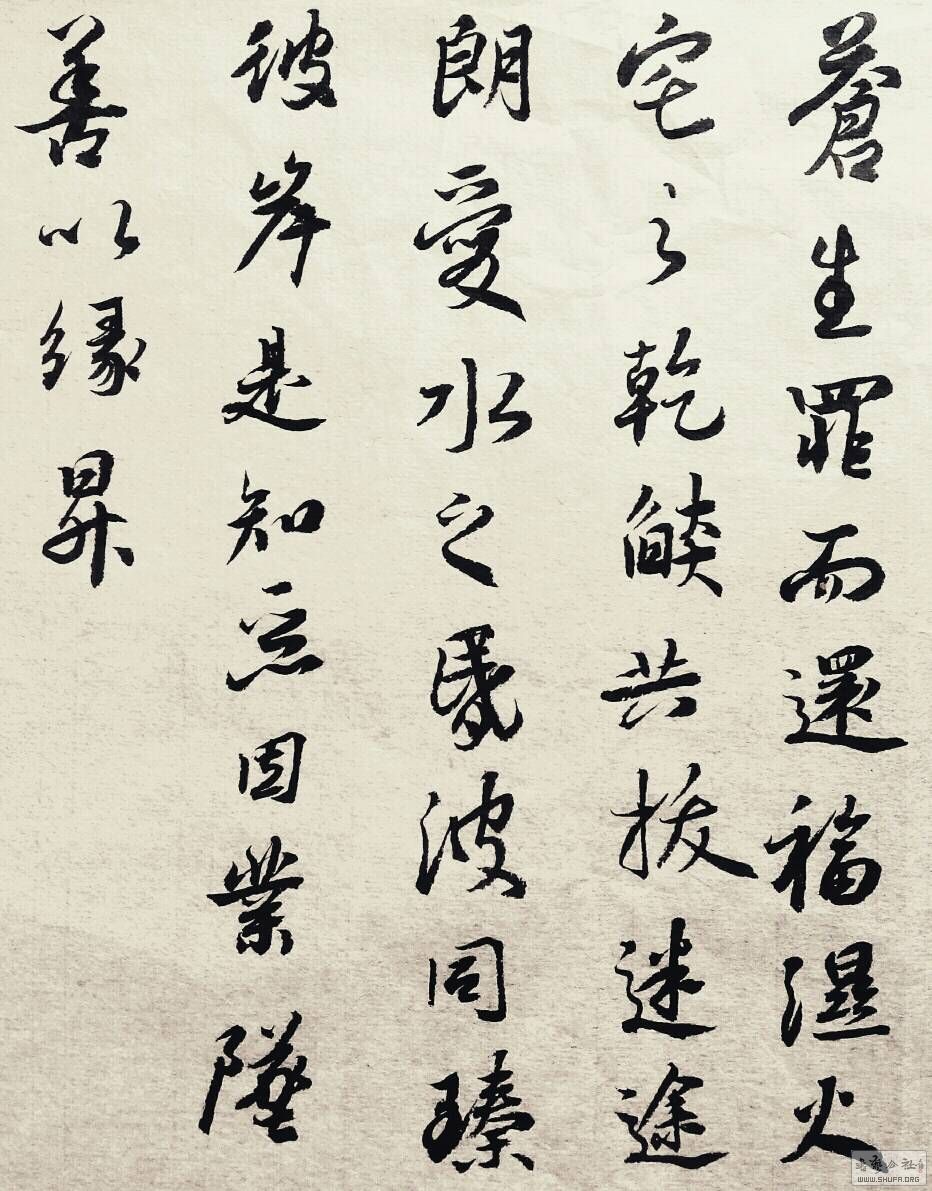 蒼生罪而還福濕火
宅之乾燄共拔迷途
朗愛水之昏波同臻
彼岸是知惡因業墜
善以緣昇
WWW.SHUFA.ORG